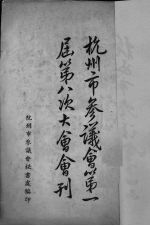 杭州市參議會第一
屆第八次大會會刊
杭州市參議會秘書處編印